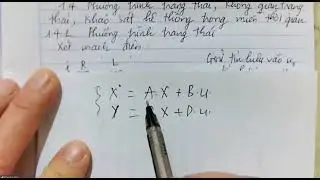 1.4. Phương trình trạng thái, không gian trạng
thái, khảo sát hệ thống trong miền thời gian
1.4.1. Phương trình trạng thái
Xét mạch điện
R L tín hiệu vào u
Ẋ = A.X + B.u
Y = X + D.u